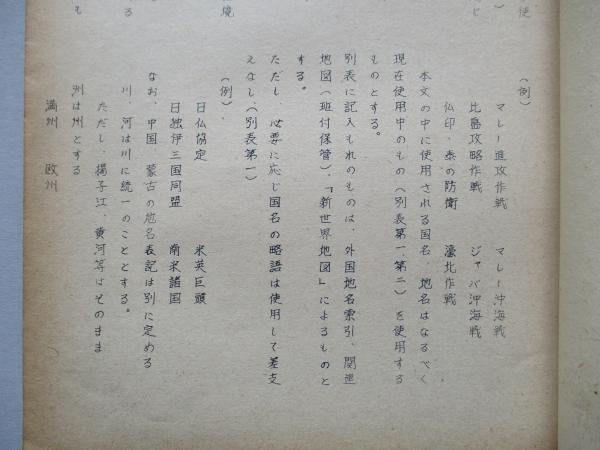 使
じ
(例)
マレー進攻作戦 マレー沖海戦
比島攻略作戦 ジャバ沖海戦
仏印、泰の防衛 濠北作戦
本文の中に使用される国名、地名はなるべく
現在使用中のもの(別表第一、第二)を使用する
ものとする。
別表に記入もれのものは、外国地名索引、関連
地図(班付保管)、「新世界地図」によるものと
する。
ただし、必要に応じ国名の略語は使用して差支
えなし(別表第一)
(例)
日仏協定 米英巨頭
日独伊三国同盟 南米諸国
なお、中国、蒙古の地名表記は別に定める
川、河は川に統一のこととする。
ただし、揚子江、黄河等はそのまま
洲は州とする
満州 欧州
境
る
も